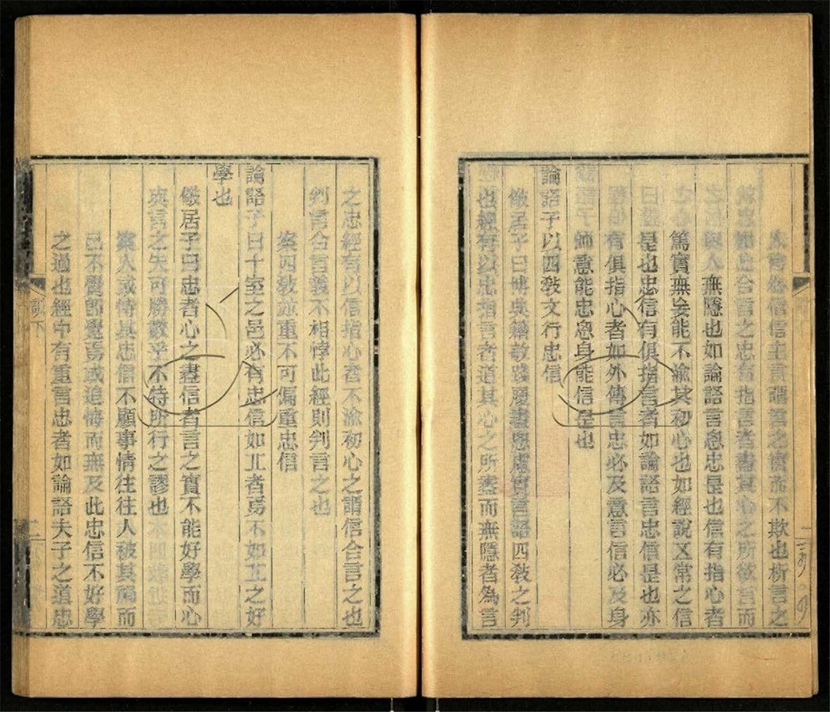 而不欺也析言之
合言之忠有指言者盡其心之所欲言而
與人無隱也如論語言忠是也信有指心者
篤實無妄能不渝其初心也如經說五常之信
是也忠信有俱指言者如論語言忠信是也亦
有俱指心者如外傳言忠必及意言信必及身
帥意能忠思身能信是也
論語子以四教文行忠信
儆居子曰博典籍敦踐履盡思慮實言語四教之判
也經有以忠指言者道其心之所盡而無隱者為言
之忠經有以信指心者不渝初心之謂信合言之也
判言合言義不相悖此經則判言之也
案四敎竝重不可偏重忠信
論語子曰十室之邑必有忠信如丘者焉不如丘之好
學也
儆居子曰忠者心之盡信者言之實不能好學而心
與言之失可勝數乎不特所行之謬也
案人或恃其忠信不顧事情往往人被其禍而
己不覺卽覺焉或追悔而無及此忠信不好學
之過也經中有重言忠者如論語夫子之道忠